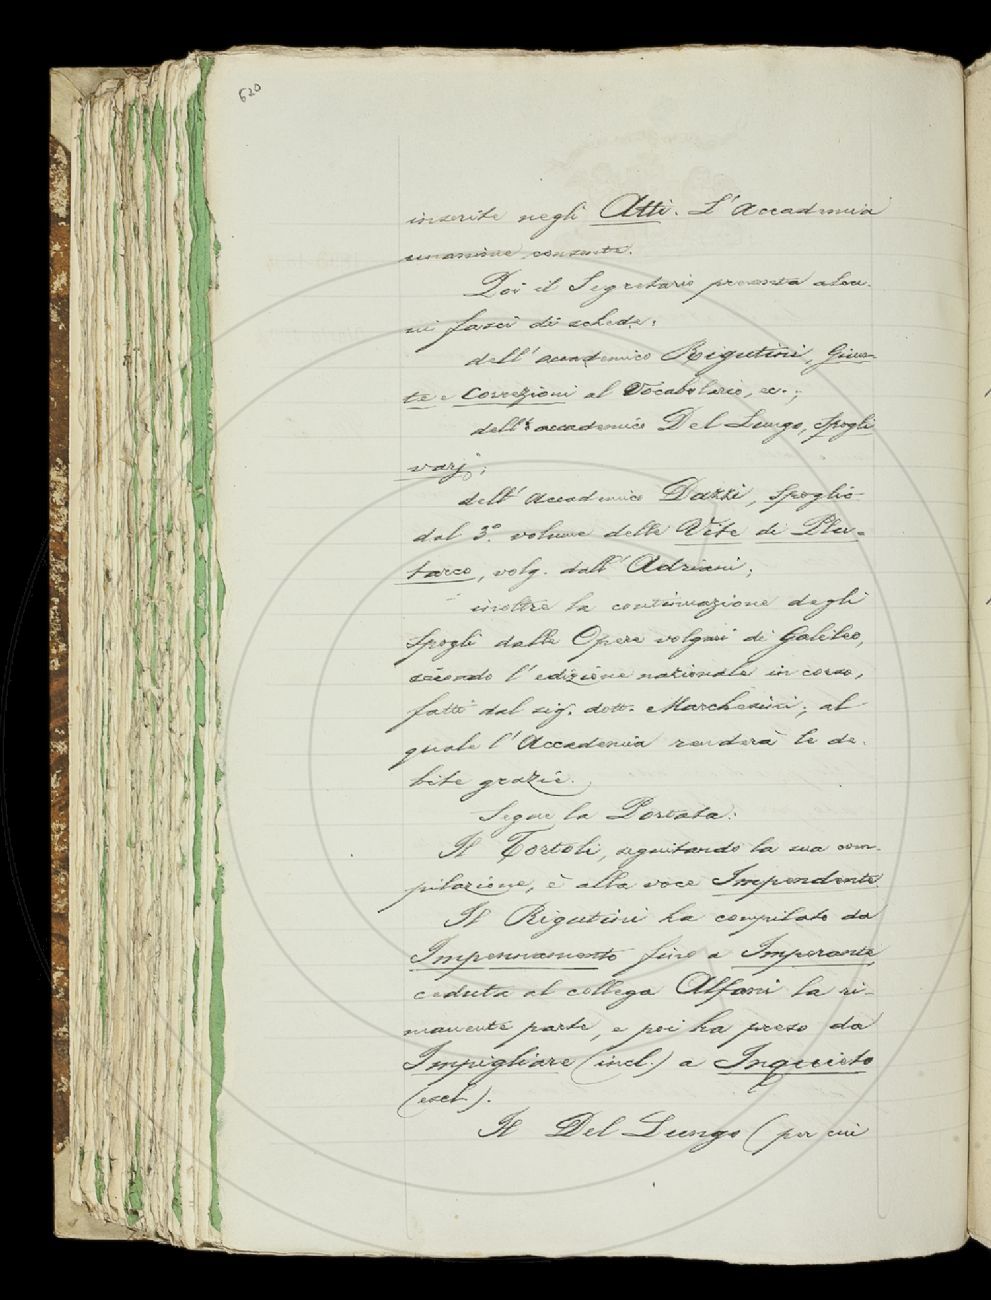 620
inserite negli Atti. L'Accademia
unanime consente.
Poi il Segretario presenta alcu-
ni fasci di schede:
dell'accademico Rigutini, Giun-
te e Correzioni al Vocabolario, ec.;
dell'accademico Del Lungo, Spogli
varj;
dell'Accademico Dazzi, Spoglio
dal 3.° volume delle Vite di Plu-
tarco, volg. dall'Adriani;
inoltre la continuazione degli
spogli dalle Opere volgari di Galileo,
secondo l'edizione nazionale in corso,
fatti dal sig. dott. Marchesini; al
quale l'Accademia renderà le de-
bite grazie.
Segue la Portata:
Il Tortoli, seguitando la sua com-
pilazione, è alla voce Impendente
Il Rigutini ha compilato da
Impennamento fino a Imperante,
ceduta al collega Alfani la ri-
manente parte, e poi ha preso da
Impigliare (incl.) a Inquieto
(escl.).
Il Del Lungo (per cui